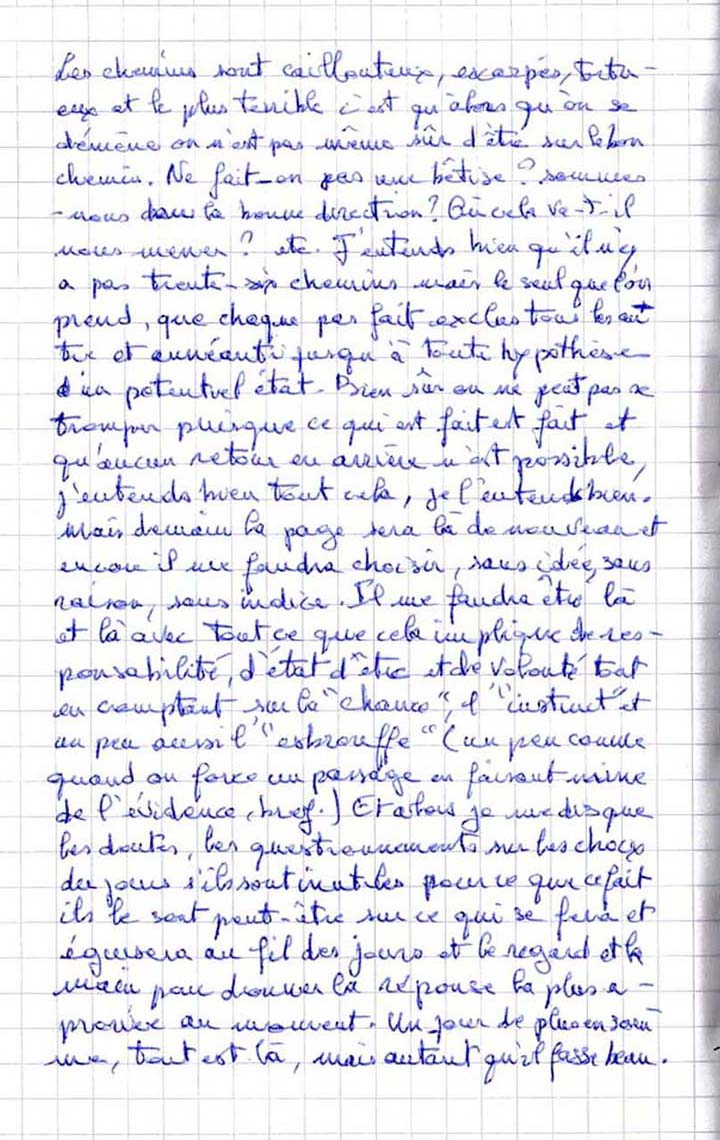 Les chemins sont caillouteux, escarpés, tortu-
eux et le plus terrible c'est qu'alors qu'on se
démène on n'est pas même sûr d'être sur le bon
chemin. Ne fait-on pas une bêtise ? sommes
-nous dans la bonne direction ? Où cela va-t-il
nous mener ? etc. J'entends bien qu'il n'y
a pas trente-six chemins mais le seul que l'on
prend, que chaque pas fait exclus tous les au
tre et annéanti jusqu'à toute hypothèse
d'un potentuel état. Bien sûr on ne peut pas se
tromper puisque ce qui est fait est fait et
qu'aucun retour en arrière n'est possible,
j'entends bien tout cela, je l'entends bien.
Mais demain la page sera là de nouveau et
encore il me faudra choisir, sans idée, sans
raison, sans indice. Il me faudra être là
et là avec tout ce que cela implique de res-
ponsabilité, d'état d'être et de volonté tout
en comptant sur la "chance", l'"instinct" et
un peu aussi l'"esbrouffe" (un peu comme
quand on force un passage en faisant mine
de l'évidence, bref.) Et alors je me dis que
les doutes, les questionnements sur les choix
du jour s'ils sont inutiles pour ce que ce fait
ils le sont peut-être sur ce qui se fera et
éguisera au fil des jours et le regard et la
main pour donner la réponse la plus a-
propriée au moment. Un jour de plus en som
me, tout est là, mais autant qu'il fasse beau.